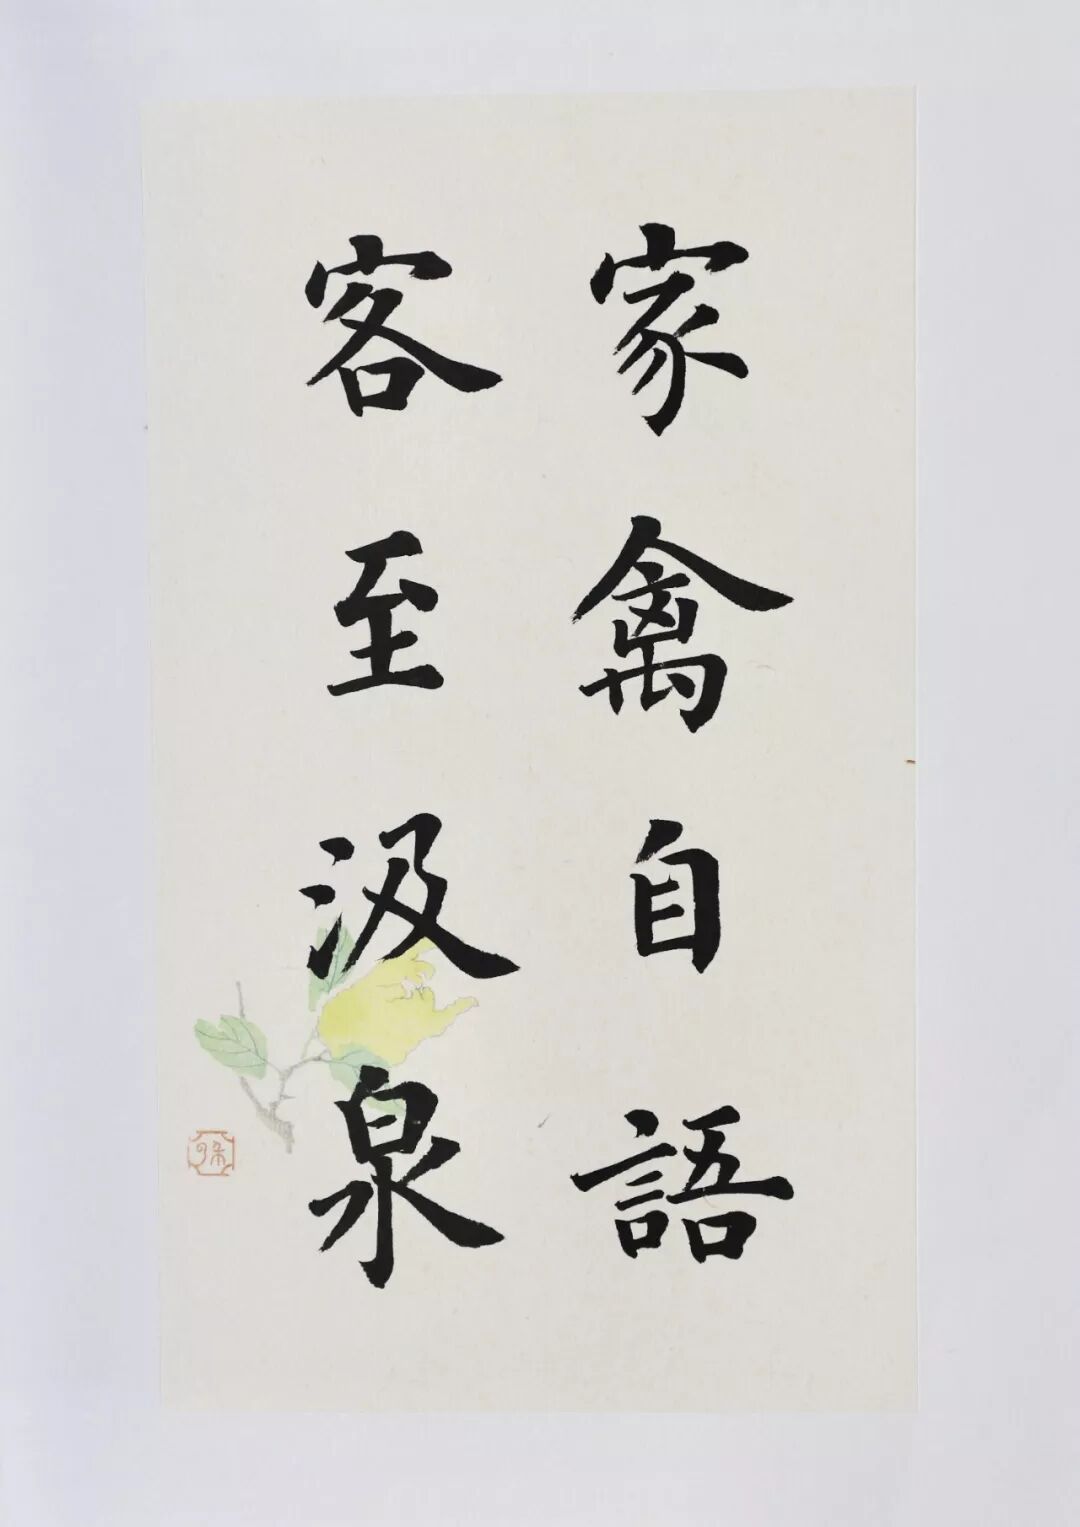 家禽自語
客至汲泉